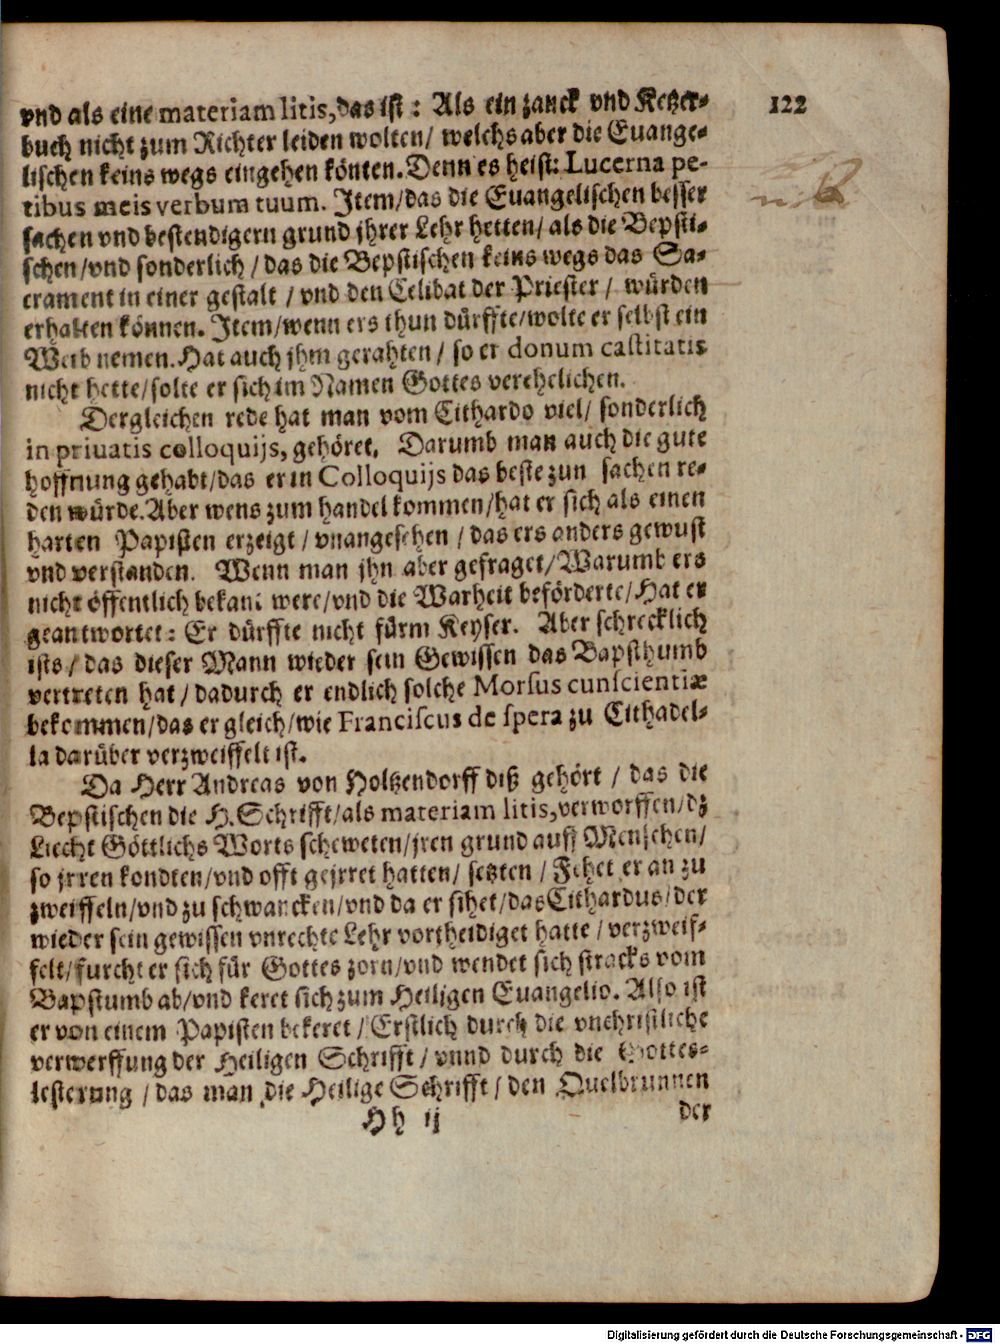 vnd als eine materiam litis, das ist: Als ein zanck vnd Ketzer-
buch nicht zum Richter leiden wolten/ welchs aber die Euange-
lischen keins wegs eingehen könten. Denn es heist: Lucerna pe-
ribus meis verbum tuum. Item/ das die Euangelischen besser
sachen vnd bestendigern grund jhrer Lehr hetten/ als die Bepsti-
schen/ vnd sonderlich/ das die Bepstischen keins wegs das Sa-
crament in einer gestalt/ vnd den Celibat der Priester/ würden
erhalten können. Item/ wenn ers thun dürffte/ wolte er selbst ein
Weib nemen. Hat auch jhm gerahten/ so er donum castitatis
nicht hette/ solte er sich im Namen Gottes verehelichen.
Dergleichen rede hat man vom Cithardo viel/ sonderlich
in priuatis colloquijs, gehöret. Darumb man auch die gute
hoffnung gehabt/ das er in Colloquijs das beste zun sachen re-
den würde. Aber wens zum handel kommen/ hat er sich als einen
harten Papisten erzeigt/ vnangesehen/ das ers anders gewust
vnd verstanden. Wenn man jhn aber gefraget/ Warumb ers
nicht öffentlich bekant were/ vnd die Warheit beförderte/ Hat er
geantwortet: Er dürffte nicht fürm Keyser. Aber schrecklich
ists/ das dieser Mann wieder sein Gewissen das Bapsthumb
vertreten hat/ dadurch er endlich solche Morsus cunscientiæ
bekommen/ das er gleich/ wie Franciscus de spera zu Cithadel-
la darüber verzweiffelt ist.
Da Herr Andreas von Holtzendorff diß gehört/ das die
Bepstischen die H. Schrifft/ als materiam litis, verworffen/ dz
Liecht Göttlichs Worts scheweten/ jren grund auff Menschen/
so jrren kondten/ vnd offt gejrret hatten/ setzten/ Fehet er an zu
zweiffeln/ vnd zu schwancken/ vnd da er sihet/ das Cithardus/ der
wieder sein gewissen vnrechte Lehr vortheidiget hatte/ verzweif-
felt/ furcht er sich für Gottes zorn/ vnd wendet sich stracks vom
Bapstumb ab/ vnd keret sich zum Heiligen Euangelio. Also ist
er von einem Papisten bekeret/ Erstlich durch die vnchristliche
verwerffung der Heiligen Schrifft/ vnnd durch die Gottes-
lesterung/ das man die Heilige Schrifft/ den Quelbrunnen
Hh ij der
122
Digitalisierung gefördert durch die Deutsche Forschungsgemeinschaft - DFG